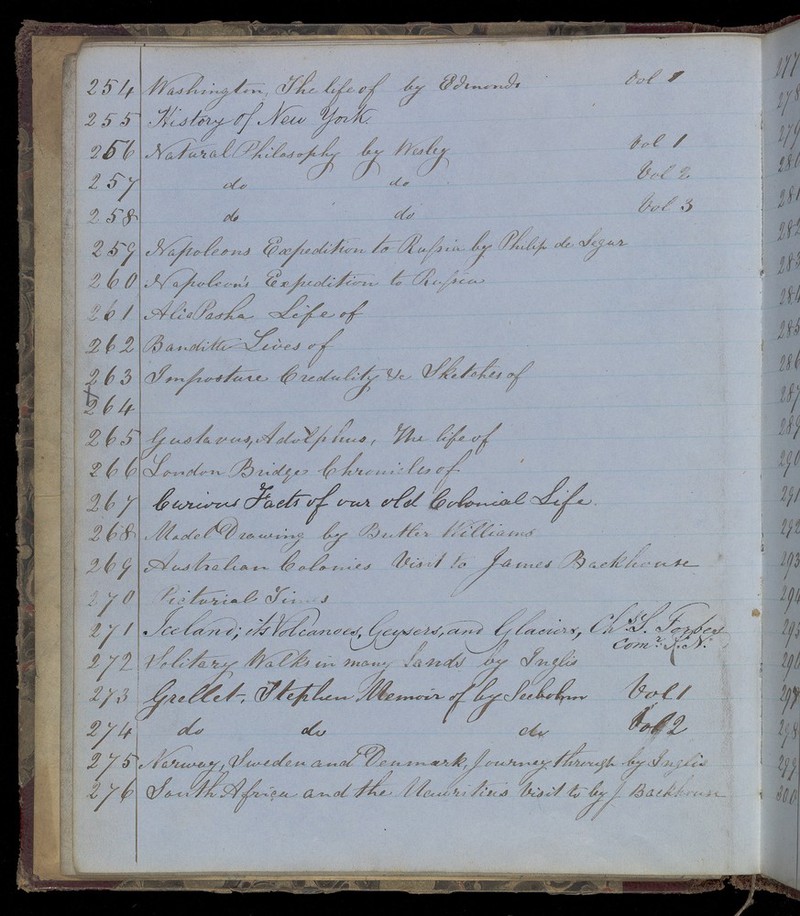 254 Washington, The life of by Edmonds Vol 1
255 History of New York
256 Natural Philosophy by Wesley Vol 1
257 do do Vol 2
258 do do Vol 3
259 Napoleons Expedition to Russia by Philip de Segur
260 Napoleon's Expedition to Russia
261 Alie Pasha Life of
262 Banditti Lives of
263 Imposture Credulity &c Sketches of
264
265 Gustavus, Adolphus, The life of
266 London Bridge Chronicles of
267 Curious Facts of our old Colonial Life.
268 Model Drawing by Butler Williams
269 Australian Colonies Visit to James Backhouse
270 Pictorial
271 Iceland; its Volcanoes, Geysers, and Glaciers, Chs. S. Forbes
Comr. R.N.
272 Solitary Walks in many Lands by Inglis
273 Grellet, Stephen Memoir of by Seebohm Vol 1
274 do do do Vol 2
275 Norway, Sweden and Denmark, Journey through by Inglis
276 South Africa and the Mauritius Visit to by J. Backhouse